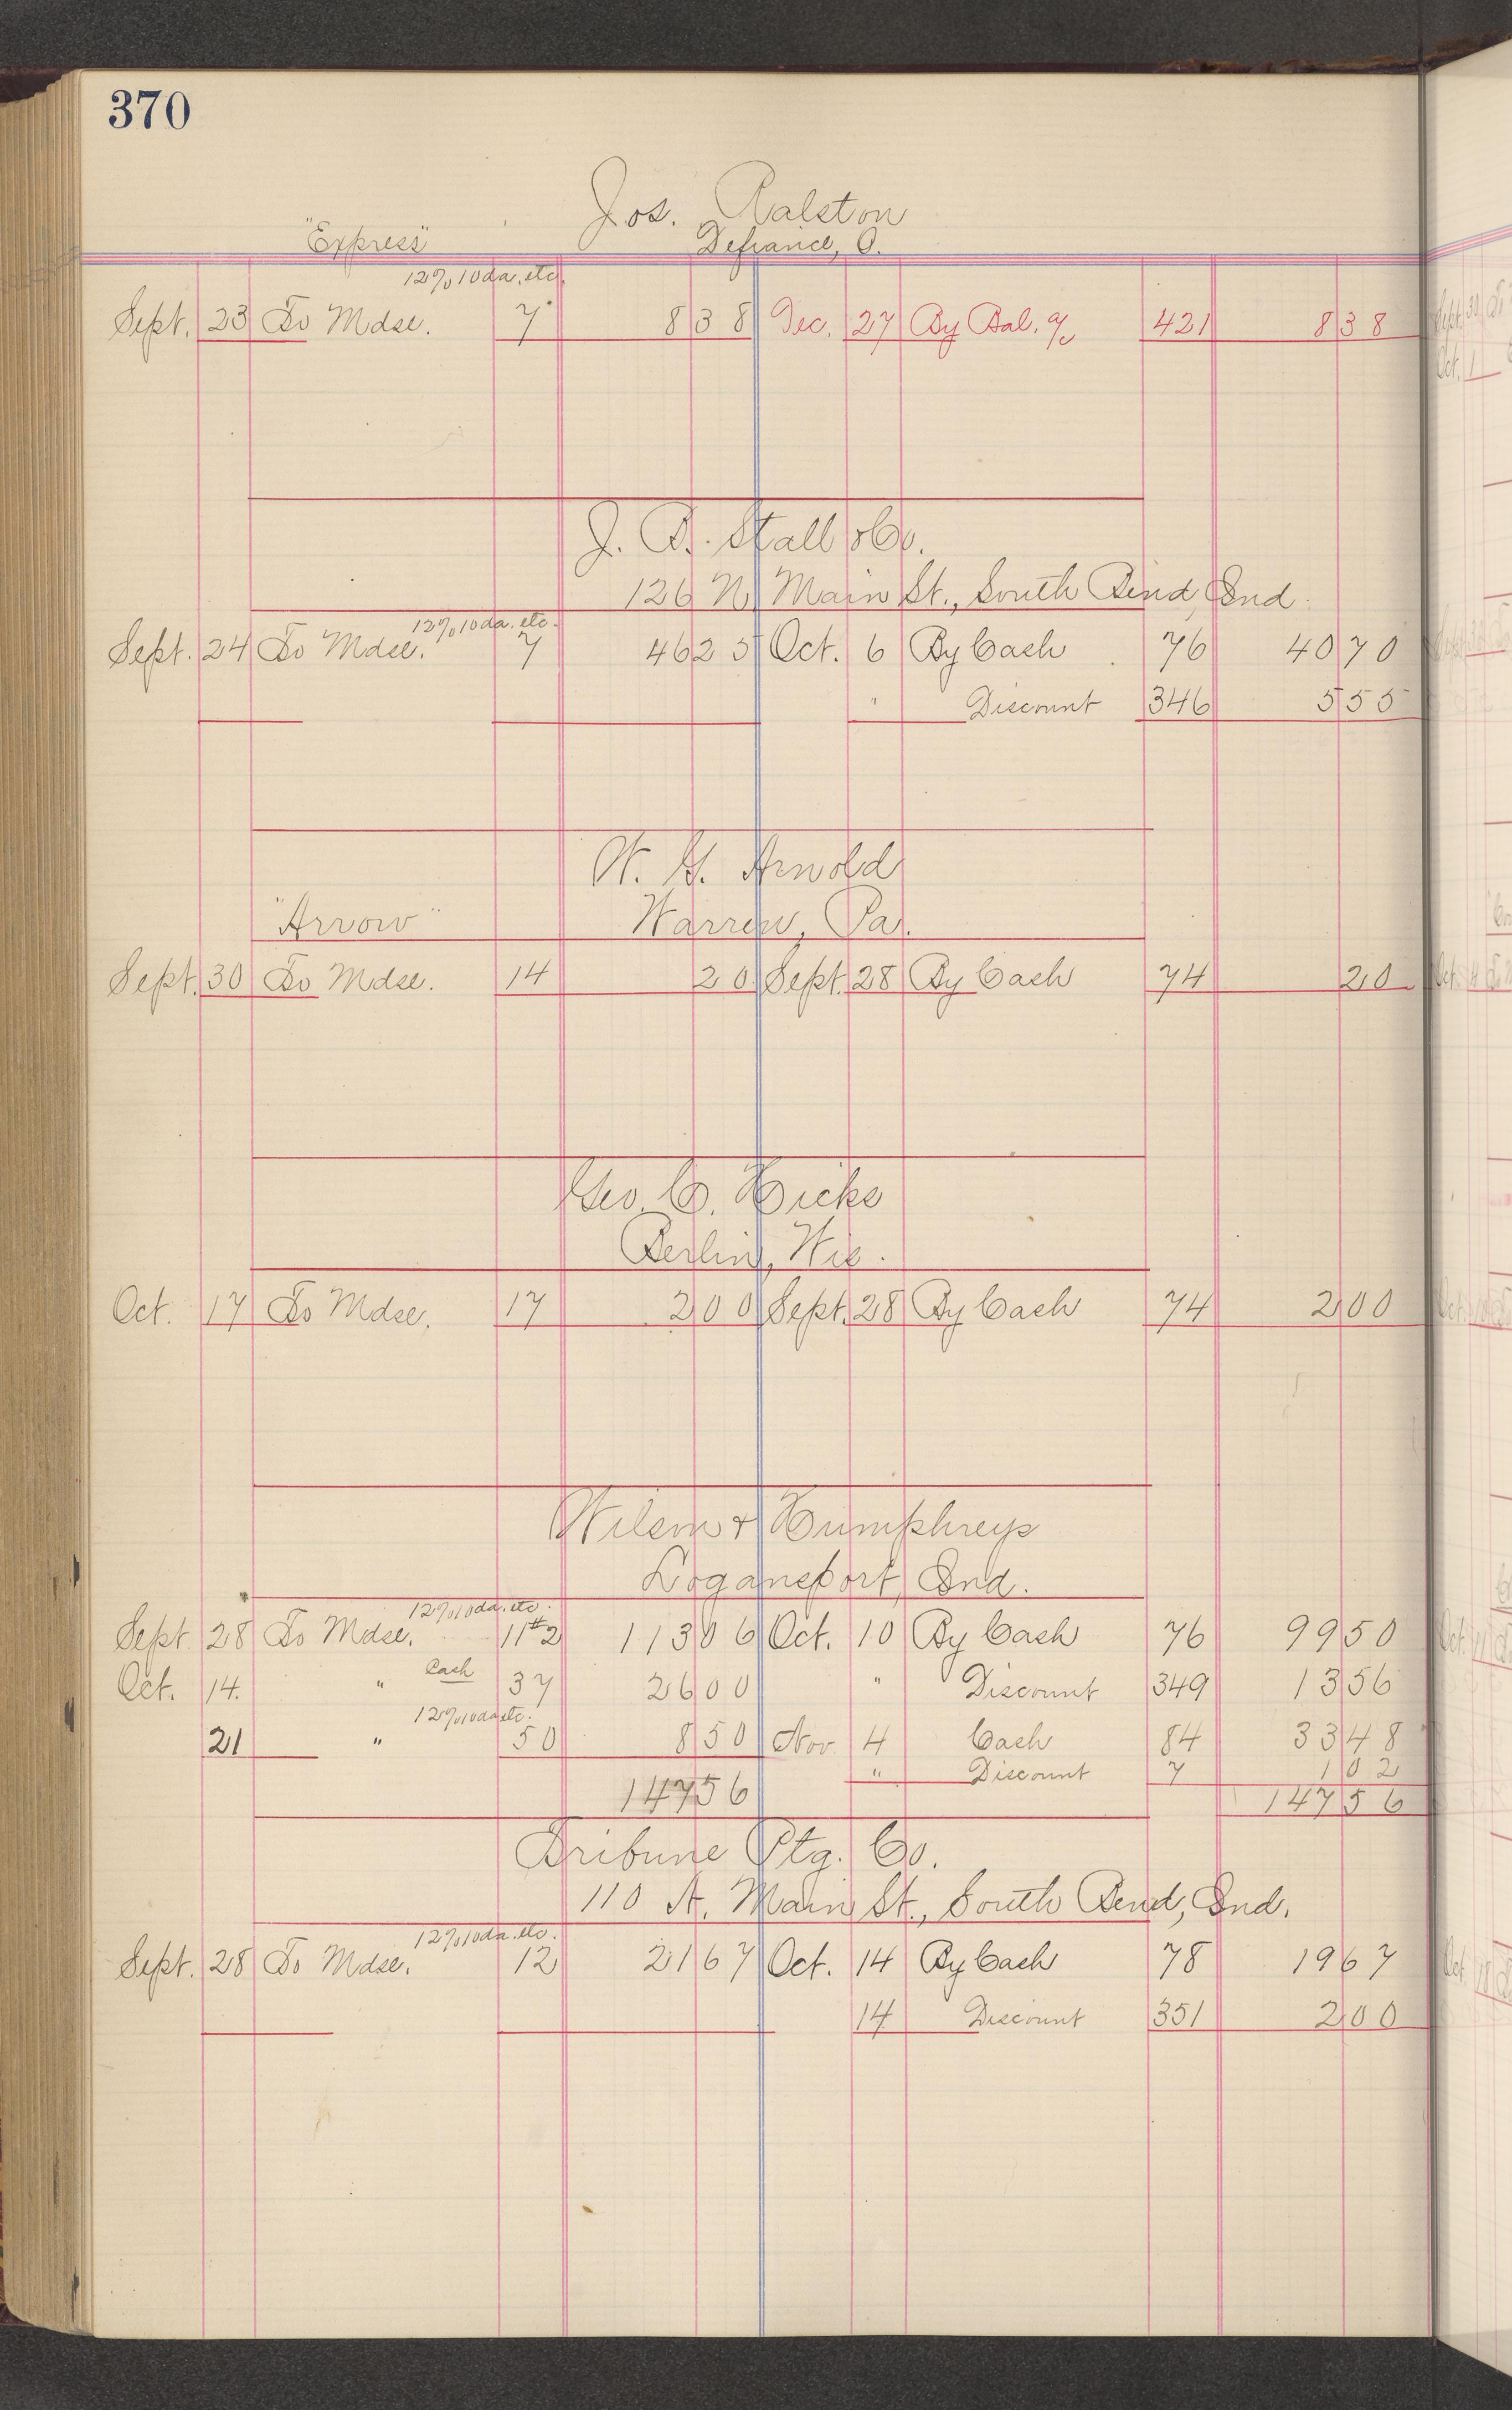 370
Jos. Ralston
"Express" Defiance, O.
12% 10 da. etc.
Sept. 23 To Mdse. 7 8 38 Dec. 27 By Bal. a/c 421 8 38
J. B. Stall & Co.
126 N. Main St., South Bend, Ind.
12% 10 da. etc.
Sept. 24 To Mdse. 7 46 25 Oct. 6 By Cash 76 40 70
" Discount 346 5 55
W. G. Arnold
"Arrow" Warren, Pa.
Sept. 30 To Mdse. 14 20 Sept. 28 By Cash 74 20
Geo. C. Hicks
Berlin, Wis.
Oct. 17 To Mdse. 17 2 00 Sept. 28 By Cash 74 2 00
Wilson & Humphreys
Logansport, Ind.
12% 10 da. etc.
Sept. 28 To Mdse. 11 #2 113 06 Oct. 10 By Cash 76 99 50
Oct. 14. " Cash 37 26 00 " Discount 349 13 56
12% 10 da etc.
21 " 50 8 50 Nov. 4 Cash 84 33 48
" Discount 7 1 02
147 56 147 56
Tribune Ptg. Co.
110 N. Main St., South Bend, Ind.
12% 10 da. etc.
Sept. 28 To Mdse. 12 21 67 Oct. 14 By Cash 78 19 67
14 Discount 351 2 00